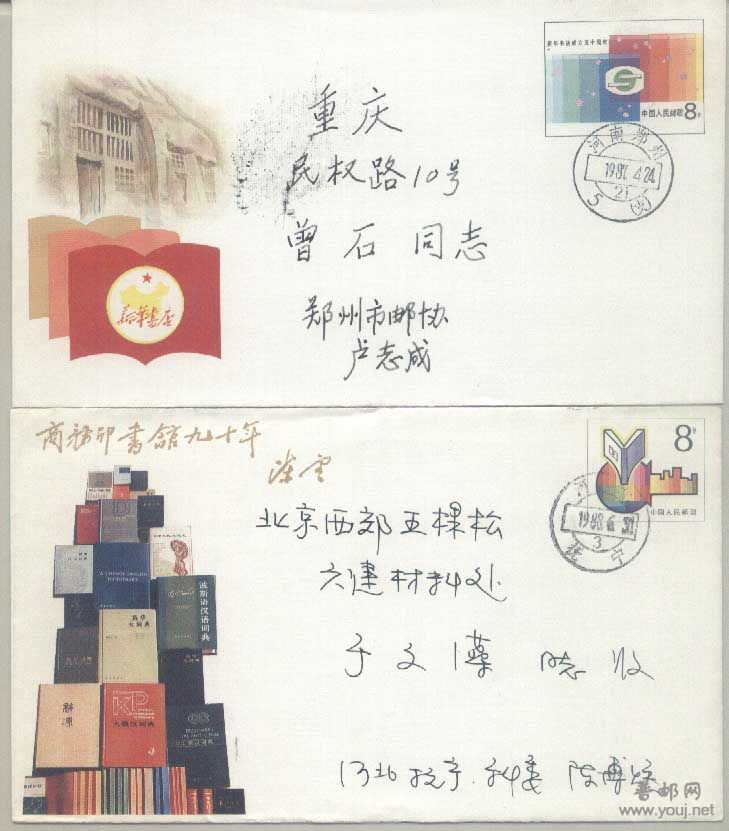 新华书店成立五十周年
中国人民邮政 8分
河南郑州
1987.4.24
21
5
重庆
民权路10号
曾石 同志
郑州市邮协
卢志成
新华书店
商務印書館九十年
陈云
8分
中国人民邮政
抚宁
3
北京西郊五棵松
六建材料处
于文 同志 收
河北抚宁.科委 陈
A CHINESE-ENGLISH
DICTIONARY
波斯语汉语词典
英华
大词典
辭源
KP
大俄汉词典
普邮网
www.youj.net